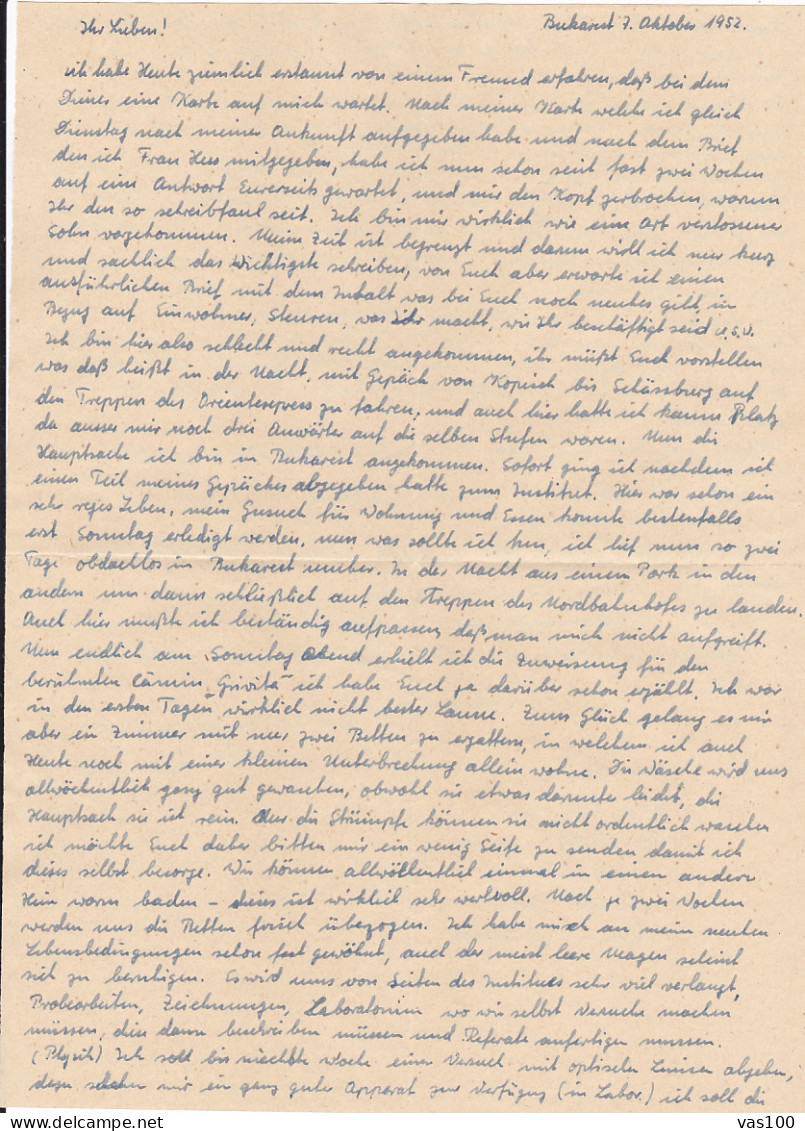 Ihr Lieben! Bukarest 7. Oktober 1952.
ich habe Heute ziemlich erstaunt von einem Freund erfahren, daß bei dem
Dienes eine Karte auf mich wartet. Nach meiner Karte welche ich gleich
Dienstag nach meiner Ankunft aufgegeben habe und nach dem Brief
den ich Frau Hess mitgegeben, habe ich nun schon seit fast zwei Wochen
auf eine Antwort Eurerseits gewartet, und mir den Kopf zerbrochen, warum
Ihr den so schreibfaul seit. Ich bin mir wirklich wie eine Art verstossener
Sohn vorgekommen. Meine Zeit ist begrenzt und darum will ich nur kurz
und sachlich das Wichtigste schreiben, von Euch aber erwarte ich einen
ausführlichen Brief mit dem Inhalt was bei Euch noch neues gibt, in
Bezug auf Einwohner, Steuren, was Ihr macht, wie Ihr beschäftigt seid u.s.w.
Ich bin hier also schlecht und recht angekommen, ihr müßt Euch vorstellen
was daß heißt in der Nacht, mit Gepäck von Kopisch bis Schässburg auf
den Treppen des Orientexpress zu fahren, und auch hier hatte ich kaum Platz
da ausser mir noch drei Anwärter auf die selben Stufen waren. Nun die
Hauptsache ich bin in Bukarest angekommen. Sofort ging ich nachdem ich
einen Teil meines Gepäckes abgegeben hatte zum Institut. Hier war schon ein
sehr reges Leben, mein Gesuch für Wohnung und Essen konnte bestenfalls
erst Sonntag erledigt werden, nun was sollte ich tun, ich lief nun so zwei
Tage obdachlos in Bukarest umher. In der Nacht aus einem Park in den
andern um dann schließlich auf den Treppen des Nordbahnhofes zu landen.
Auch hier mußte ich beständig aufpassen, daß man mich nicht aufgreift.
Nun endlich am Sonntag abend erhielt ich die Zuweisung für den
berühmten Cămin „Grivița" ich habe Euch ja darüber schon erzählt. Ich war
in den ersten Tagen wirklich nicht bester Laune. Zum Glück gelang es mir
aber ein Zimmer mit nur zwei Betten zu ergattern, in welchem ich auch
Heute noch mit einer kleinen Unterbrechung allein wohne. Die Wäsche wird uns
allwöchentlich ganz gut gewaschen, obwohl sie etwas darunter leidet, die
Hauptsach sie ist rein. Aber die Strümpfe können sie nicht ordentlich waschen
ich möchte Euch daher bitten mir ein wenig Seife zu senden damit ich
dieses selbst besorge. Wir können allwöllentlich einmal in einen andern
Heim warm baden – dieses ist wirklich sehr wertvoll. Nach je zwei Wochen
werden uns die Betten frisch überzogen. Ich habe mich an mein neuen
Lebensbedingungen schon fast gewöhnt, auch der meist leere Magen scheint
sich zu beruhigen. Es wird uns von Seiten des Institutes sehr viel verlangt,
Probearbeiten, Zeichnungen, Laboratorium wo wir selbst Versuche machen
müssen, diese dann beschreiben müssen und Referate anfertigen müssen.
(Physik) Ich soll bis nächste Woche einen Versuch mit optischen Linsen abgeben,
dazu stehen mir ein ganz guter Apparat zur Verfügung (in Labor.) ich soll die